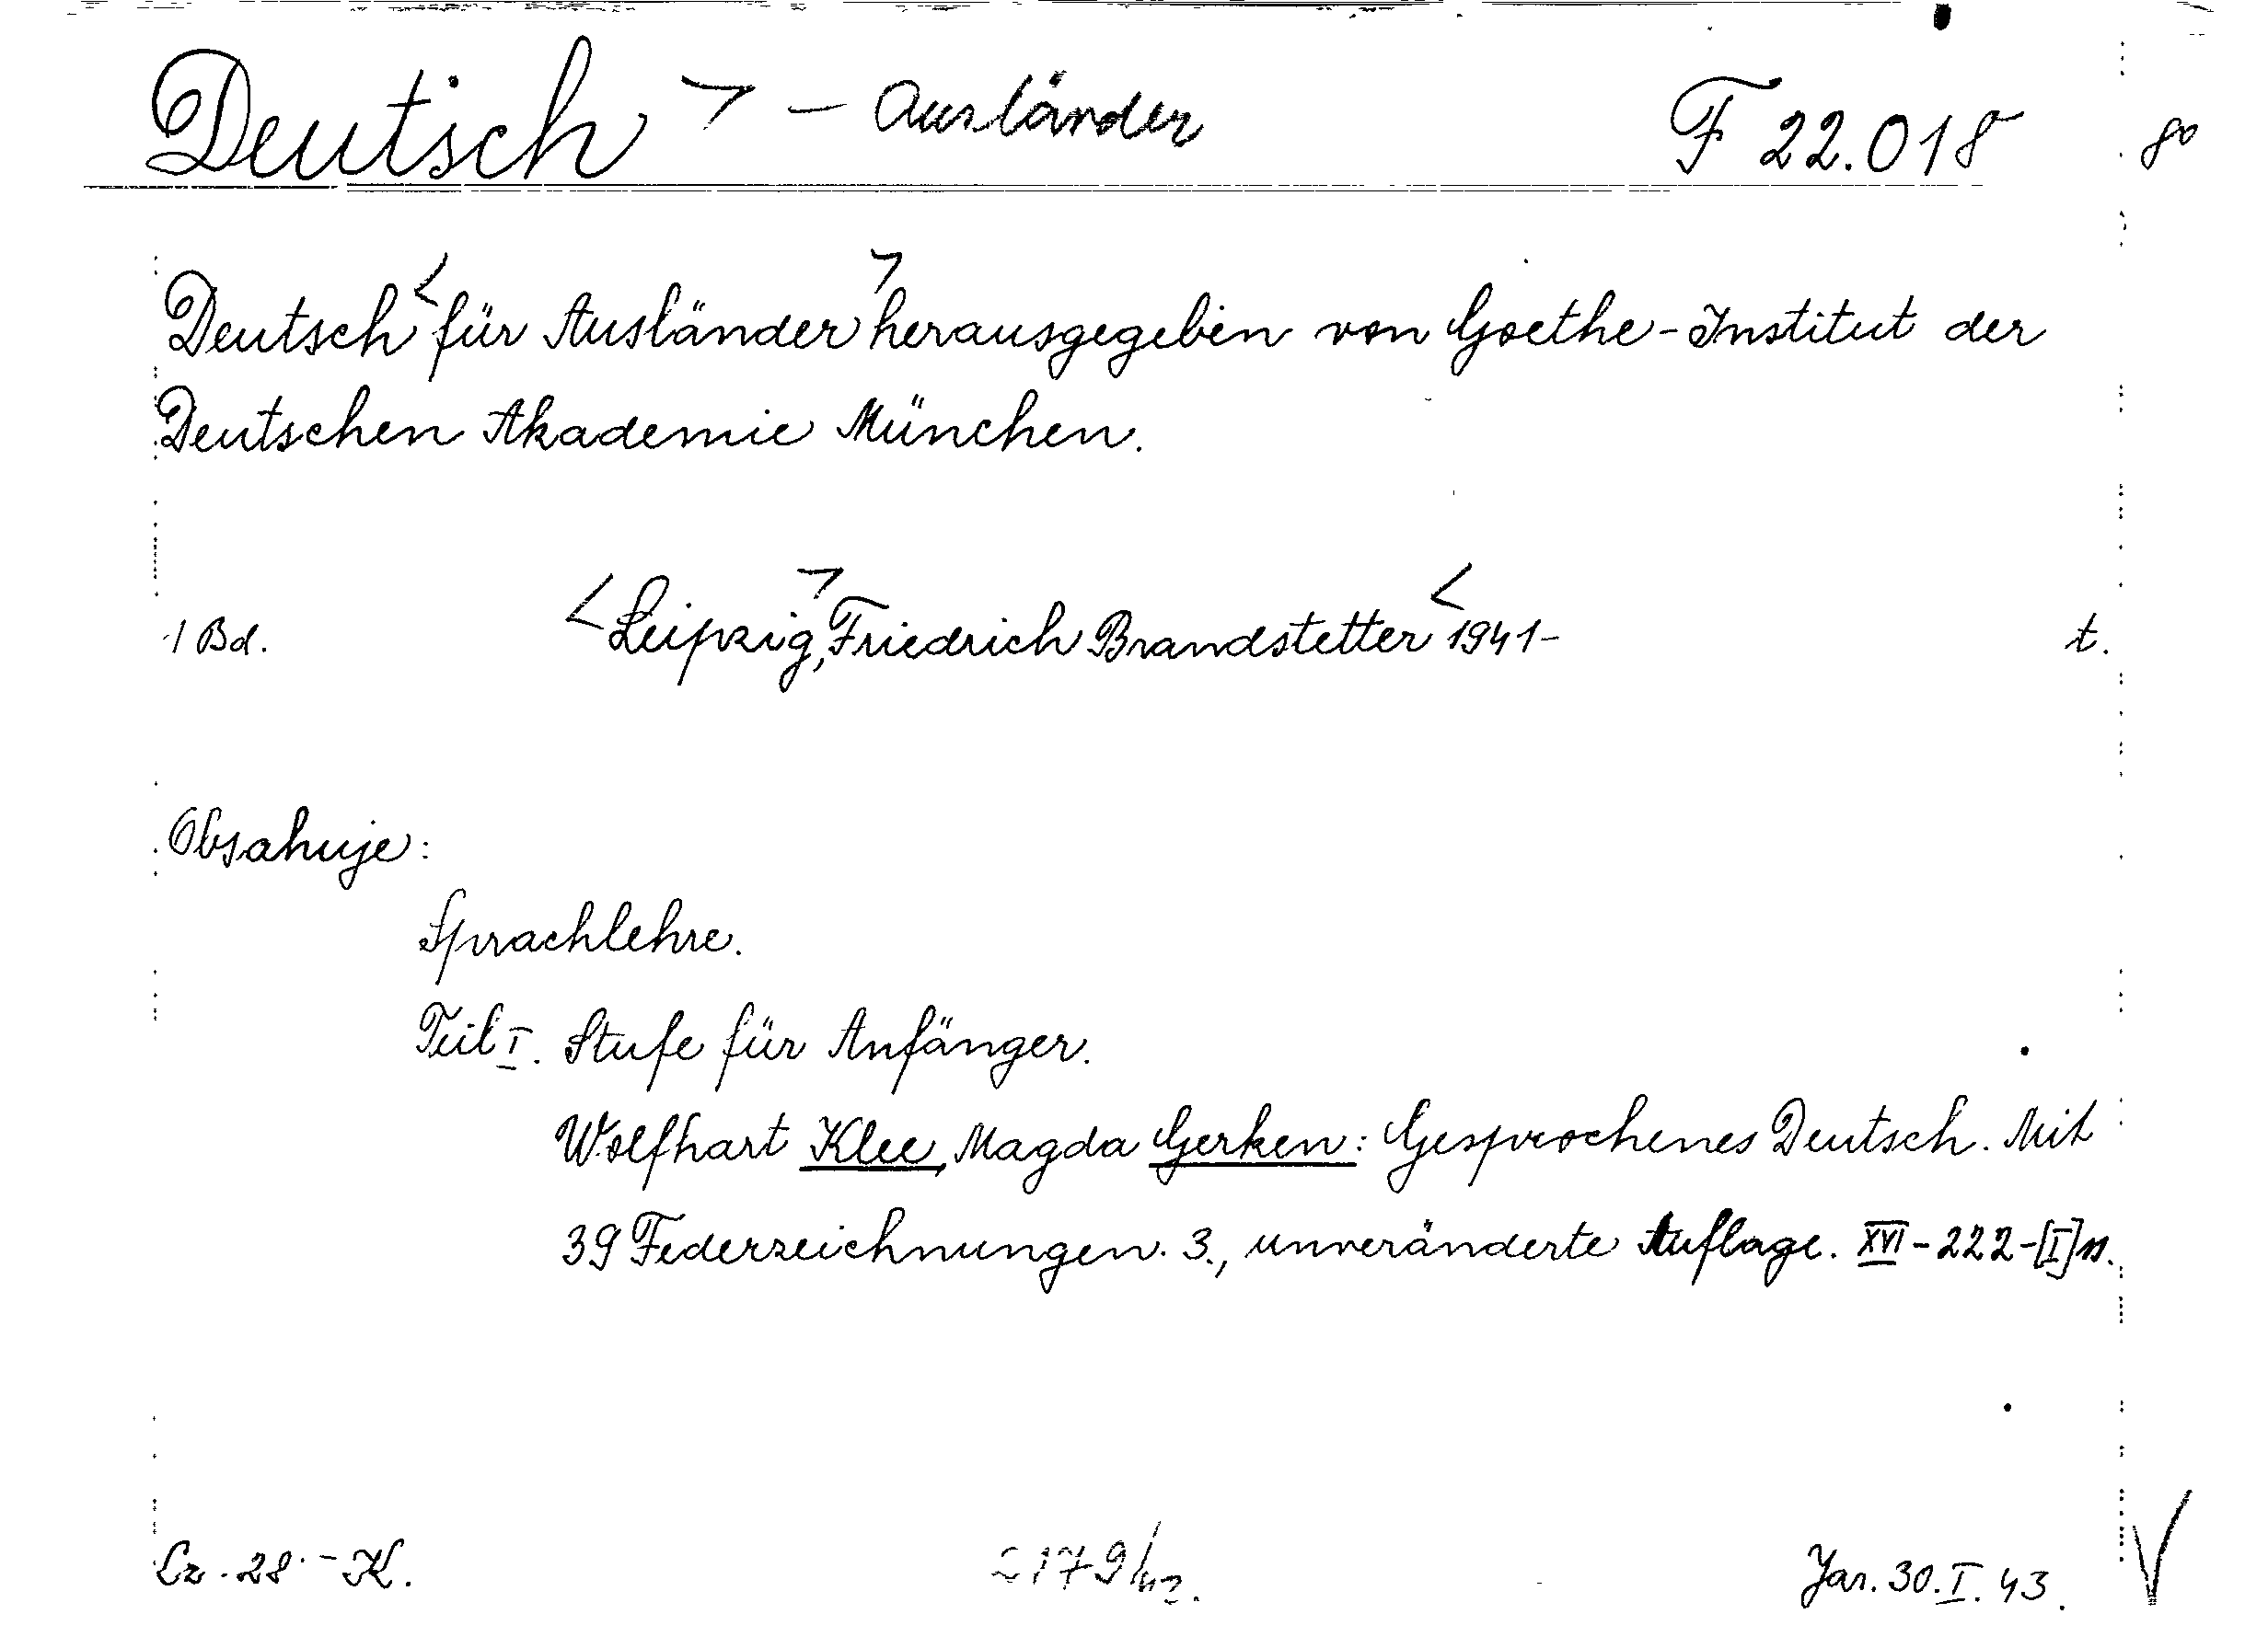 Deutsch > – Ausländer F 22.018 8°
Deutsch < für Ausländer > herausgegeben von Goethe-Institut der
Deutschen Akademie München.
1 Bd. < Leipzig, > Friedrich Brandstetter < 1941- t.
Obsahuje:
Sprachlehre.
Teil I. Stufe für Anfänger.
Wolfhart Klee, Magda Gerken: Gesprochenes Deutsch. Mit
39 Federzeichnungen. 3., unveränderte Auflage. XVI-222-[I] s.
28 - K. 2179/42. Jar. 30.I.43.